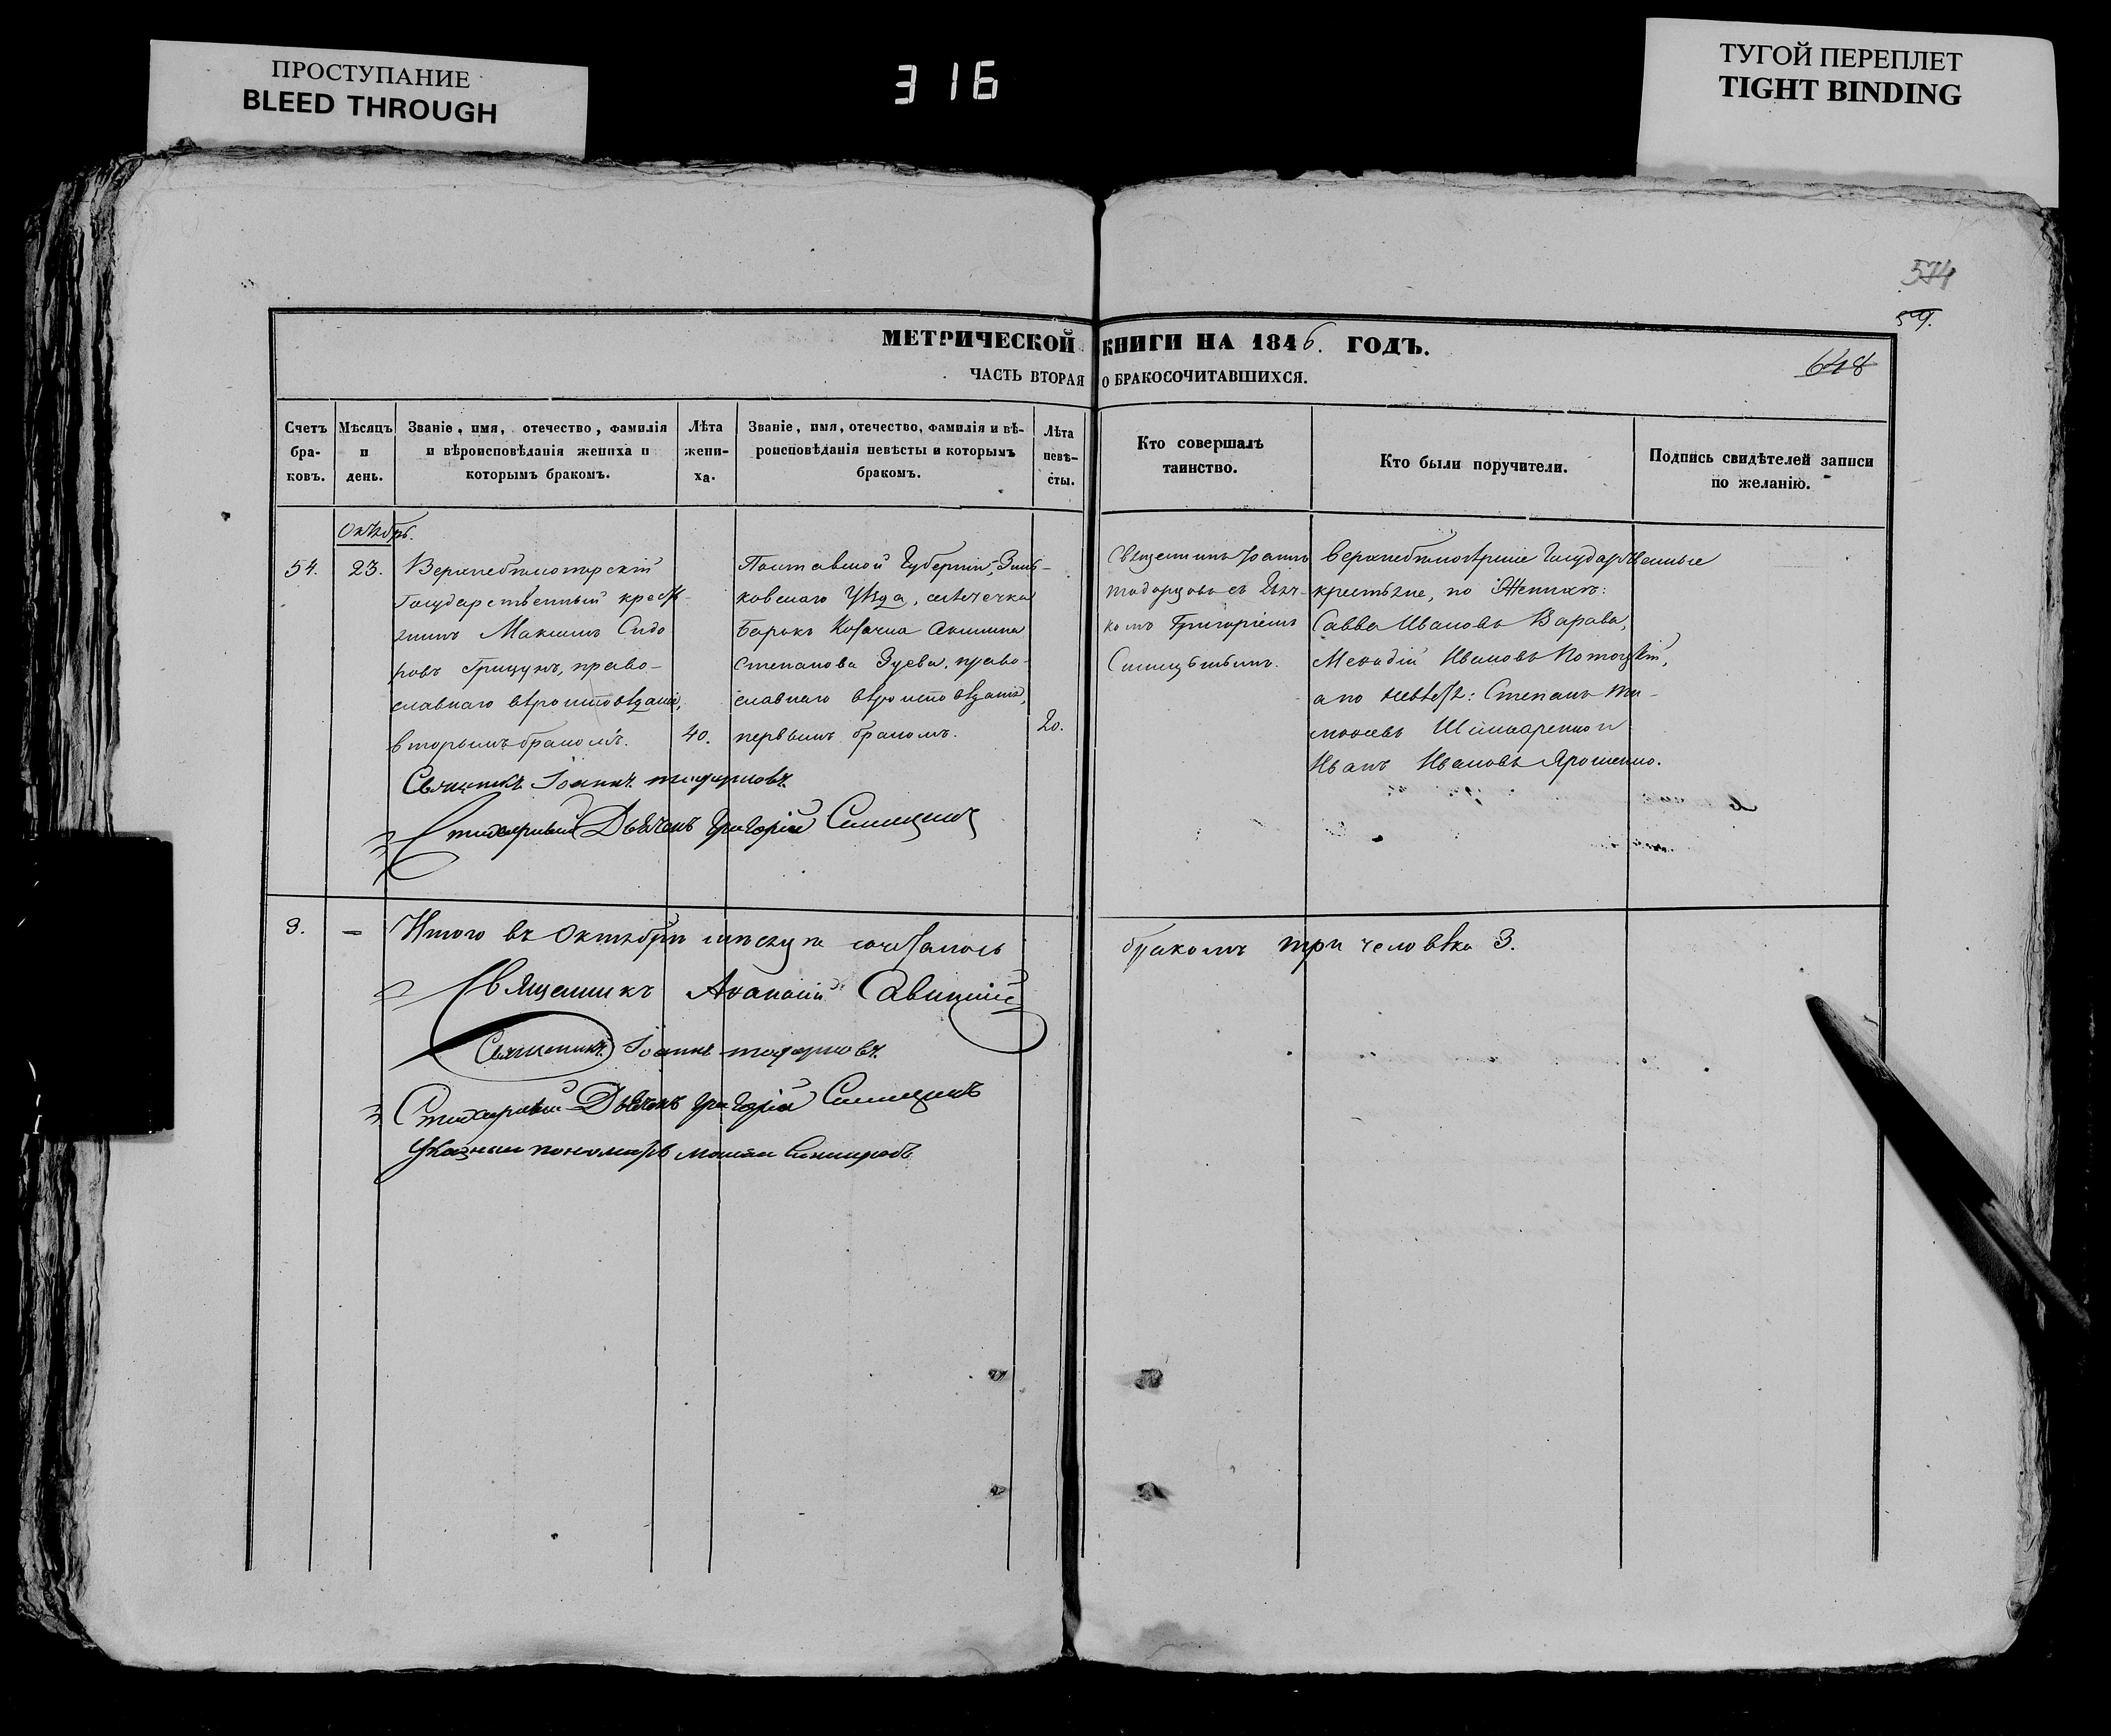 ПРОСТУПАНИЕ
BLEED THROUGH
316
ТУГОЙ ПЕРЕПЛЕТ
TIGHT BINDING
574
59.
МЕТРИЧЕСКОЙ КНИГИ НА 1846. ГОДЪ.
648
ЧАСТЬ ВТОРАЯ О БРАКОСОЧИТАВШИХСЯ.
Счетъ бра-
ковъ.
Мѣсяцъ
и
день.
Званіе, имя, отечество, фамилія
и вѣроисповѣданія жениха и
которымъ бракомъ.
Лѣта
жени-
ха.
Званіе, имя, отечество, фамилія и вѣ-
роисповѣданія невѣсты и которымъ
бракомъ.
Лѣта
невѣ-
сты.
Кто совершалъ
таинство.
Кто были поручители.
Подпись свидѣтелей записи
по желанію.
Октябрь.
54.
23.
Государственный кресть-
янинъ Максимъ Сидо
ровъ Грицунъ, право-
славнаго вѣроисповѣданія,
вторымъ бракомъ.
40.
Полтавской Губерніи, Зинь-
ковскаго Уѣзда, мѣстечка
Борокъ Козачка Акилина
Степанова Зуева, право-
славнаго вѣроисповѣданія,
первымъ бракомъ.
20.
Священникъ Іоаннъ
съ Дьяч-
комъ Григоріемъ
Синицынымъ.
Государственные
крестьяне, по Женихѣ:
Савва Ивановъ Варава,
Ивановъ Потоцкій,
а по невѣстѣ: Степанъ Ти-
и
Иванъ Ивановъ Ярошенко.
Священникъ Іоаннъ
Стихарный Дьячекъ Григорій Синицынъ
3.
—
Итого въ Октябрѣ мѣсяцѣ сочеталось
бракомъ три человѣка 3.
Священникъ Аѳанасій Савицкій
Священникъ Іоаннъ
Стихарный Дьячекъ Григорій Синицынъ
Указный пономарь